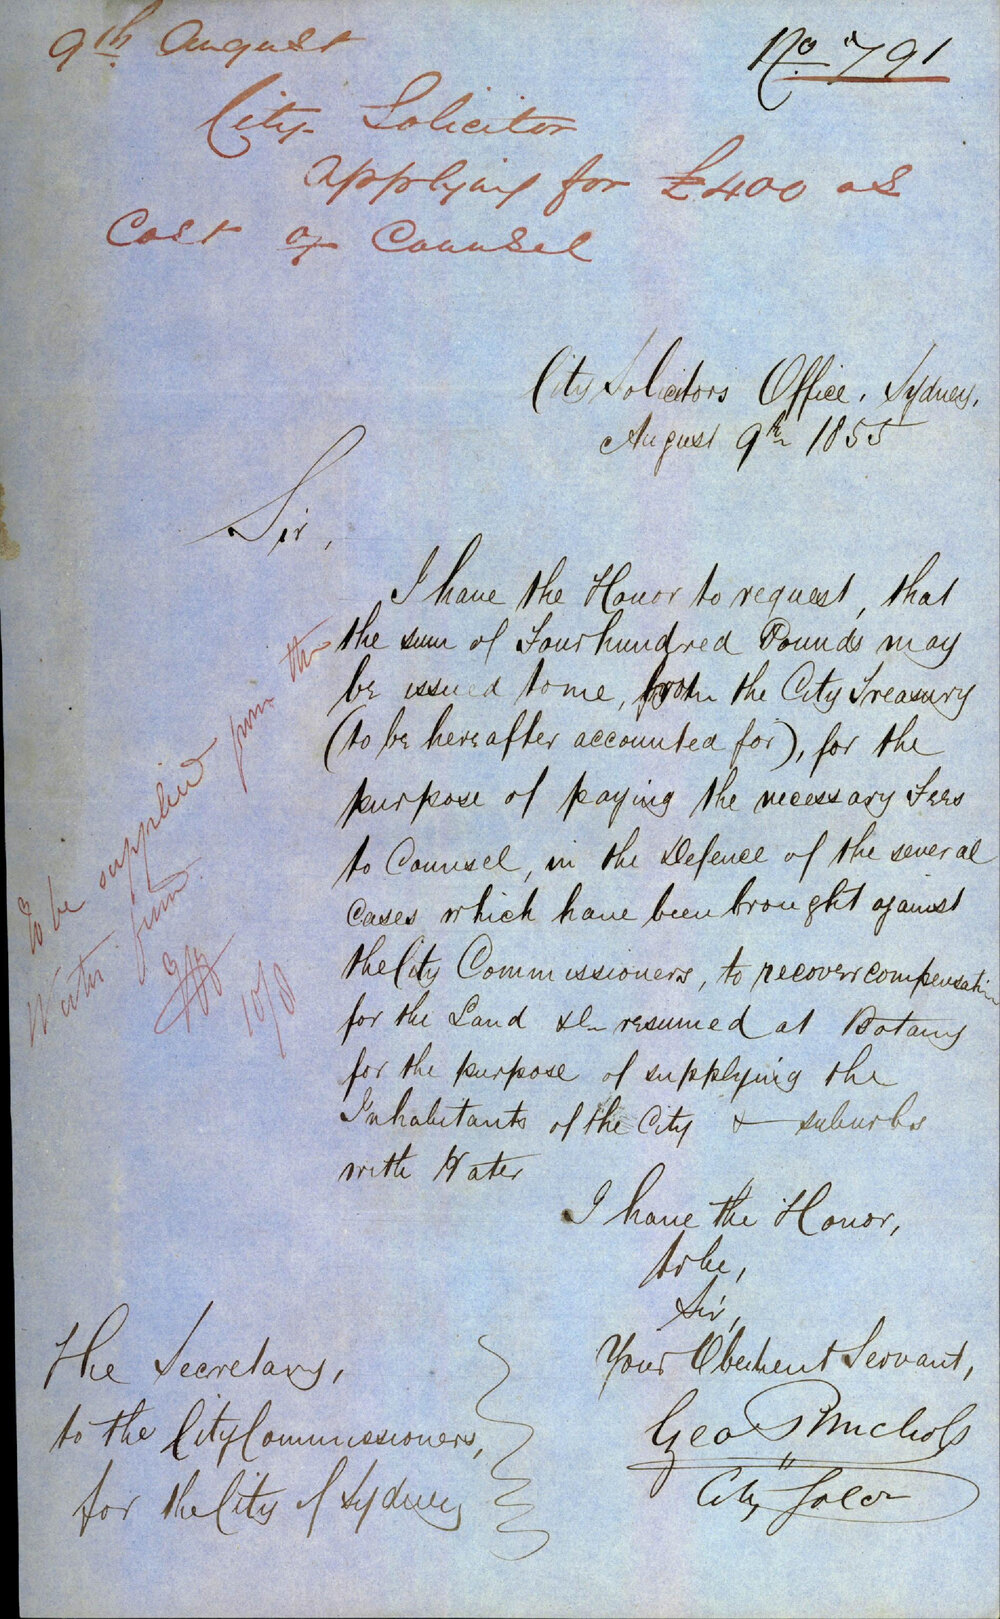 9th August
No 791
City Solicitor
applying for £400 as
Cost of Counsel
City Solicitors Office, Sydney,
August 9th 1855
Sir,
I have the Honor to request, that
the sum of Four hundred Pounds may
be issued to me, from the City Treasury
(to be hereafter accounted for), for the
purpose of paying the necessary Fees
to Counsel, in the Defence of the several
Cases which have been brought against
the City Commissioners, to recover compensation
for the Land &c resumed at Botany
for the purpose of supplying the
Inhabitants of the City & suburbs
with Water
To be supplied from the
Water fund.
10/8
I have the Honor,
to be,
Sir,
Your Obedient Servant,
Geo R Nichols
City Solor
The Secretary,
to the City Commissioners,
for the City of Sydney